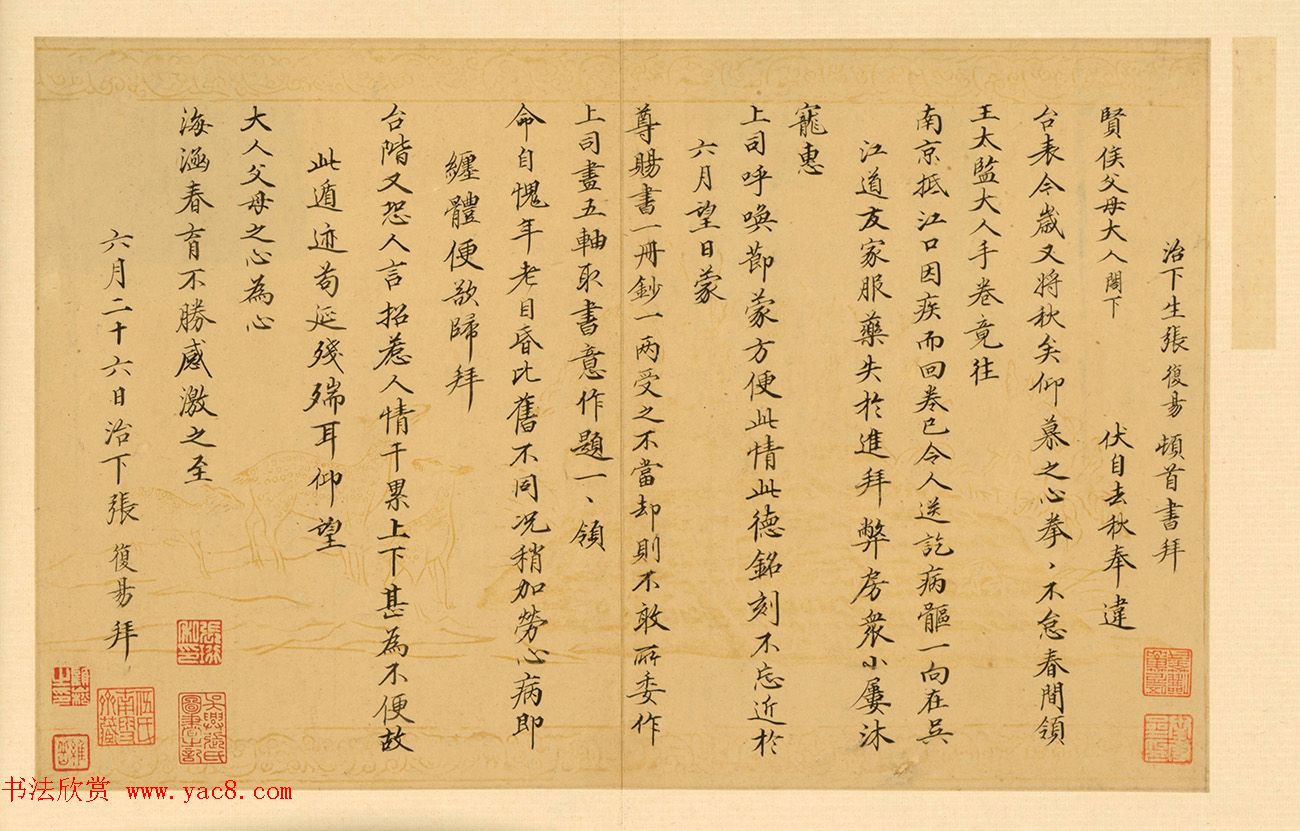 治下生張復昜頓首書拜
賢侯父母大人閣下 伏自去秋奉違
台表今歲又將秋矣仰慕之心拳、不怠春間領
王太監大人手卷竟往
南京抵江口因疾而回卷已令人送訖病軀一向在吳
江道友家服藥失於進拜弊房衆小屢沐
寵惠
上司呼喚節蒙方便此情此德銘刻不忘近於
六月望日蒙
尊賜書一冊鈔一兩受之不當却則不敢所委作
上司畫五軸取書意作題一、領
命自愧年老目昏比舊不同况稍加勞心病即
纏體便欲歸拜
台階又恐人言招惹人情干累上下甚為不便故
此遁迹苟延殘喘耳仰望
大人父母之心為心
海涵春育不勝感激之至
六月二十六日治下張復昜拜
吳興張氏圖書之記
书法欣赏 www.yac8.com